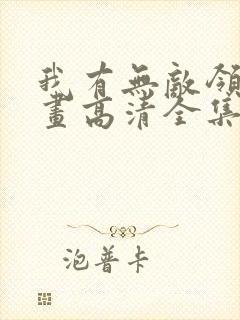 我有無敵領
畫高清全集
泡普卡